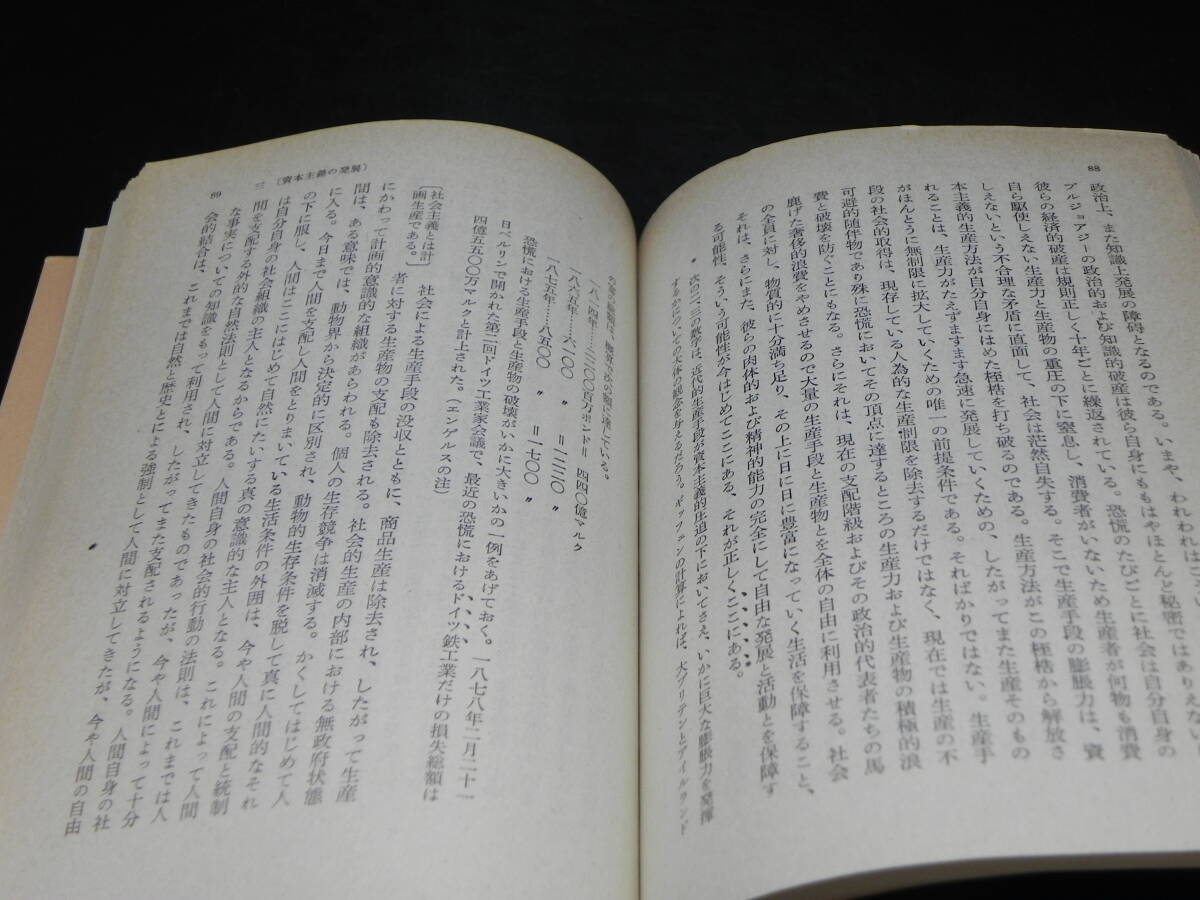 88
政治上、また知識上発展の障碍となるのである。いまや、われわれはこ
ブルジョアジーの政治的および知識的破産は彼ら自身にももはやほとんど秘密ではない
彼らの経済的破産は規則正しく十年ごとに繰返されている。恐慌のたびごとに社会は自分自身の
自ら駆使しえない生産力と生産物の重圧の下に窒息し、消費者がいないため生産者が何物も消費
しえないという不合理な矛盾に直面して、社会は茫然自失する。そこで生産手段の膨脹力は、資
本主義的生産方法が自分自身にはめた桎梏を打ち破るのである。生産方法がこの桎梏から解放さ
れることは、生産力がたえずますます急速に発展していくための、したがってまた生産そのもの
がほんとうに無制限に拡大していくための唯一の前提条件である。そればかりではない。生産手
段の社会的取得は、現存している人為的な生産制限を除去するだけではなく、現在では生産の不
可避的随伴物であり殊に恐慌においてその頂点に達するところの生産力および生産物の積極的浪
費と破壊を防ぐことにもなる。さらにそれは、現在の支配階級およびその政治的代表者たちの馬
鹿げた奢侈的浪費をやめさせるので大量の生産手段と生産物とを全体の自由に利用させる。社会
の全員に対し、物質的に十分満ち足り、その上に日に日に豊富になっていく生活を保障すること、
それは、さらにまた、彼らの肉体的および精神的能力の完全にして自由な発展と活動とを保障す
る可能性、そういう可能性が今はじめてここにある、それが正しくここにある。
* 次の二、三の数字は、近代的生産手段が資本主義的圧迫の下においてさえ、いかに巨大な膨脹力を発揮
するかについての大体の観念を与えるだろう。ギッフェンの計算によれば、大ブリテンとアイルランド
の富の総額は、概算で次の額に達している。
一八一四年……二二〇〇百万ポンド＝四四〇億マルク
一八六五年……六一〇〇 〃 ＝一二二〇 〃
一八七五年……八五〇〇 〃 ＝一七〇〇 〃
恐慌における生産手段と生産物の破壊がいかに大きいかの一例をあげておく。一八七八年二月二十一
日、ベルリンで開かれた第二回ドイツ工業家会議で、最近の恐慌におけるドイツ鉄工業だけの損失総額は
四億五五〇〇万マルクと計上された。（エンゲルスの注）
〔社会主義とは計
画生産である。〕
社会による生産手段の没収とともに、商品生産は除去され、したがって生産
者に対する生産物の支配も除去される。社会的生産の内部における無政府状態
にかわって計画的意識的な組織があらわれる。個人の生存競争は消滅する。かくしてはじめて人
間は、ある意味では、動物界から決定的に区別され、動物的生存条件を脱して真に人間的なそれ
に入る。今日まで人間を支配し人間をとりまいている生活条件の外囲は、今や人間の支配と統制
の下に服し、人間はここにはじめて自然にたいする真の意識的な主人となる。これによって人間
は自分自身の社会組織の主人となるからである。人間自身の社会的行動の法則は、これまでは人
間を支配する外的な自然法則として人間に対立してきたものであったが、今や人間によって十分
な事実についての知識をもって利用され、したがってまた支配されるようになる。人間自身の社
会的結合は、これまでは自然と歴史とによる強制として人間に対立してきたが、今や人間の自由
三 〔資本主義の発展〕
89